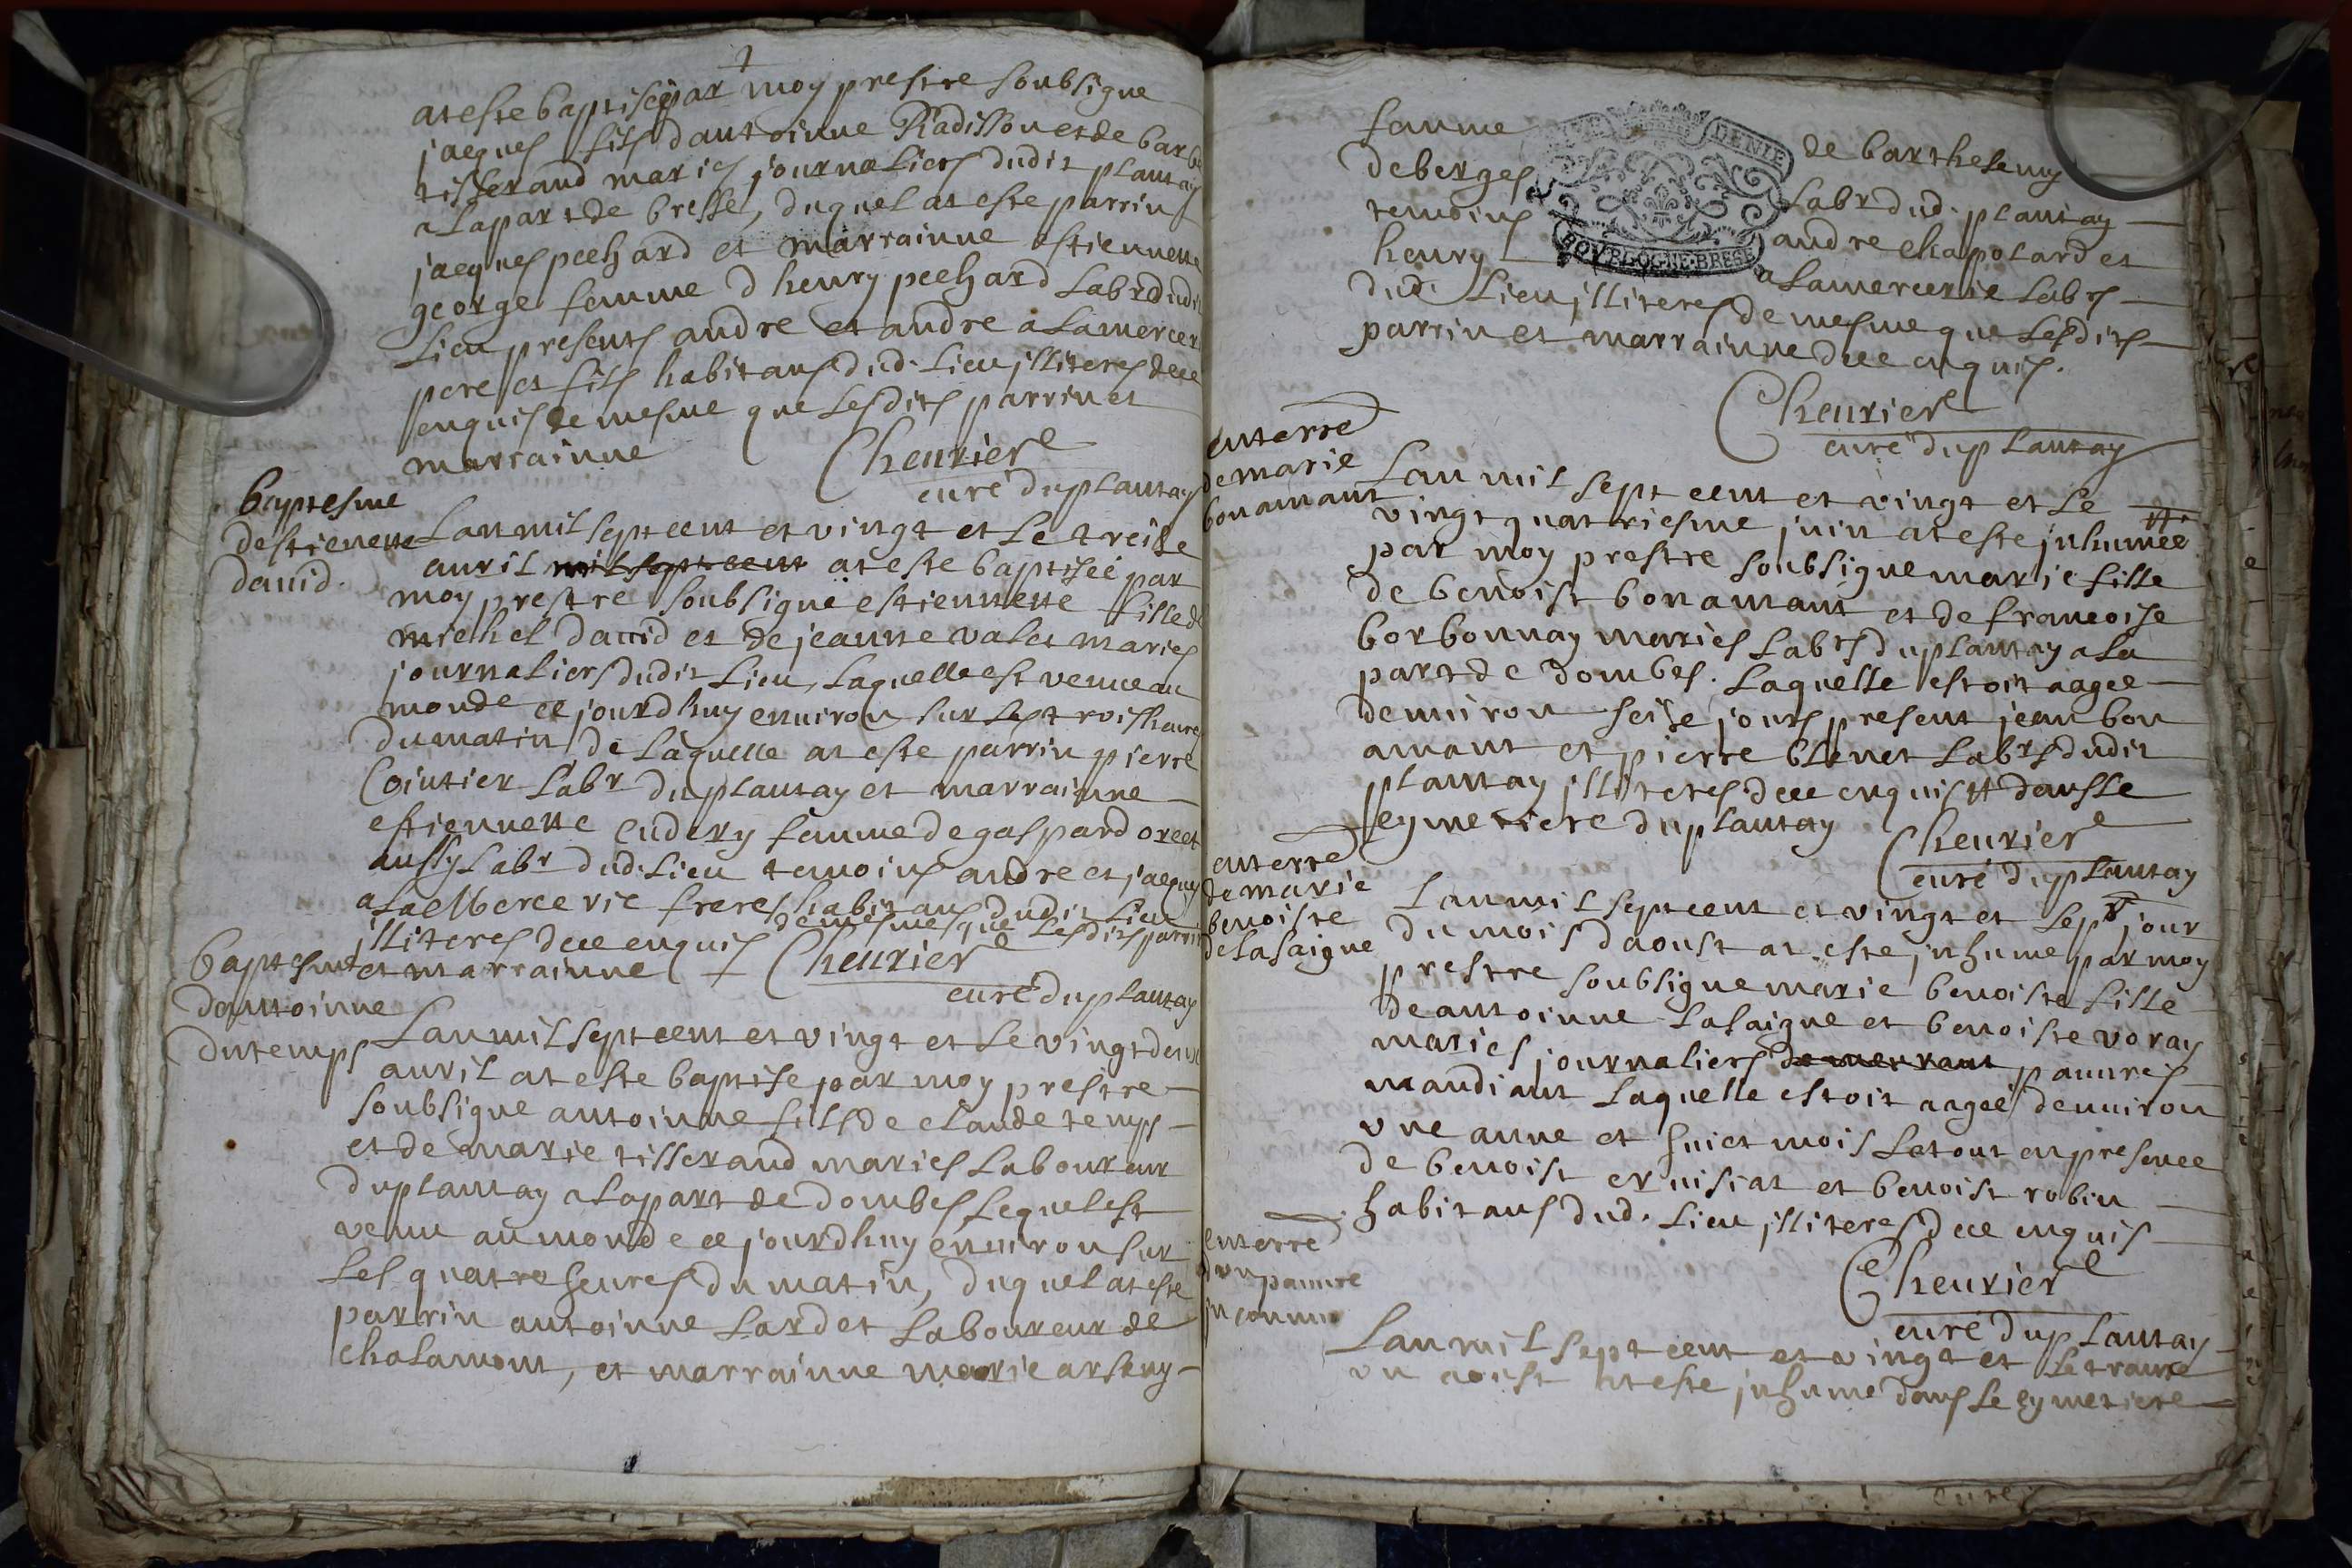 at este baptisé par moy prestre soubsigne
jacques fils dantoinne Radisson et de barbe
tisserand mariés journaliers dudit plantay
a la part de bresse, duquel at este parrin
jacques pechard et marrainne estiennette
george femme d henry pechard Labr dudit
Lieu presents andre et andre a La mercerie
pere et fils habitans dud. Lieu illiteres de ce
enquis de mesme que Lesdits parrin et
marrainne Cheurier
curé du plantay
baptesme
destienette
dauid.
Lan mil sept cent et vingt et Le treise
auril mil sept cent at este baptiseé par
moy prestre soubsigné estiennette fille de
michel dauid et de jeanne valet mariés
journaliers dudit Lieu, Laquelle est venue au
monde ce jourdhuy enuiron sur Les trois heures
du matin, de Laquelle at este parrin pierre
Cointier Labr du plantay et marrainne
estiennette cudery femme de gaspard orcet
aussy Labr dud. Lieu temoins andre et jacques
a La Mercerie freres habitans dudit Lieu
illiteres de ce enquis de mesme que Lesdits parrin
et marrainne Cheurier
curé du plantay
baptesme
dantoinne
dutemps
Lan mil sept cent et vingt et Le vingt deux
auril at este baptise par moy prestre
soubsigne antoinne fils de claude temps
et de marie tisserand mariés Laboureur
du plantay a La part de dombes, Lequel est
venu au monde ce jourdhuy enuiron sur
Les quatre heures du matin, duquel at este
parrin antoinne Lardet Laboureur de
chalamont, et marrainne marie arseny
femme de barthelemy
deberges Labr dud. plantay
temoins andre chapolard et
henry a La mercerie Labrs
dud. Lieu illiteres de mesme que Lesdits
parrin et marrainne de ce enquis.
Cheurier
curé du plantay
enterre
de marie
bonamant
Lan mil sept cent et vingt et Le
vingt quatriesme juin at este inhumeé
par moy prestre soubsigne marie fille
de benoist bonamant et de francoise
borbonnay mariés Labrs du plantay a La
part de dombes. Laquelle estoit aageé
denuiron seise jours present jean bon
amant et pierre blenet Labrs dudit
plantay illiteres de ce enquis dans Le
cymetiere du plantay Cheurier
curé du plantay
enterre
de marie
benoiste
de Lasaigne
Lan mil sept cent et vingt et Sept jour
du mois daoust at este inhume par moy
prestre soubsigne marie benoiste fille
de antoinne Lasaigne et benoiste voray
mariés journaliers demeurant pauures
mandiant Laquelle estoit aageé denuiron
vne anne et huict mois Le tout en presence
de benoist eruisiat et benoist robin
habitans dud. Lieu illiteres de ce enquis
Cheurier
curé du plantay
enterre
dvn pauure
inconnu
Lan mil sept cent et vingt et Le trante
vn aoust at este inhume dans Le cymetiere
BOVRGOGNE·BRESSE